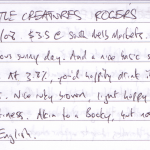 TLE CREATURES ROGERS
/03 $35 @ South Melb Markets.
on sunny day. And a nice basic s
At 3.8%, you'd happily drink it
s. Nice ruby brown, light hoppy
iness. Akin to a Booty, but no
English.